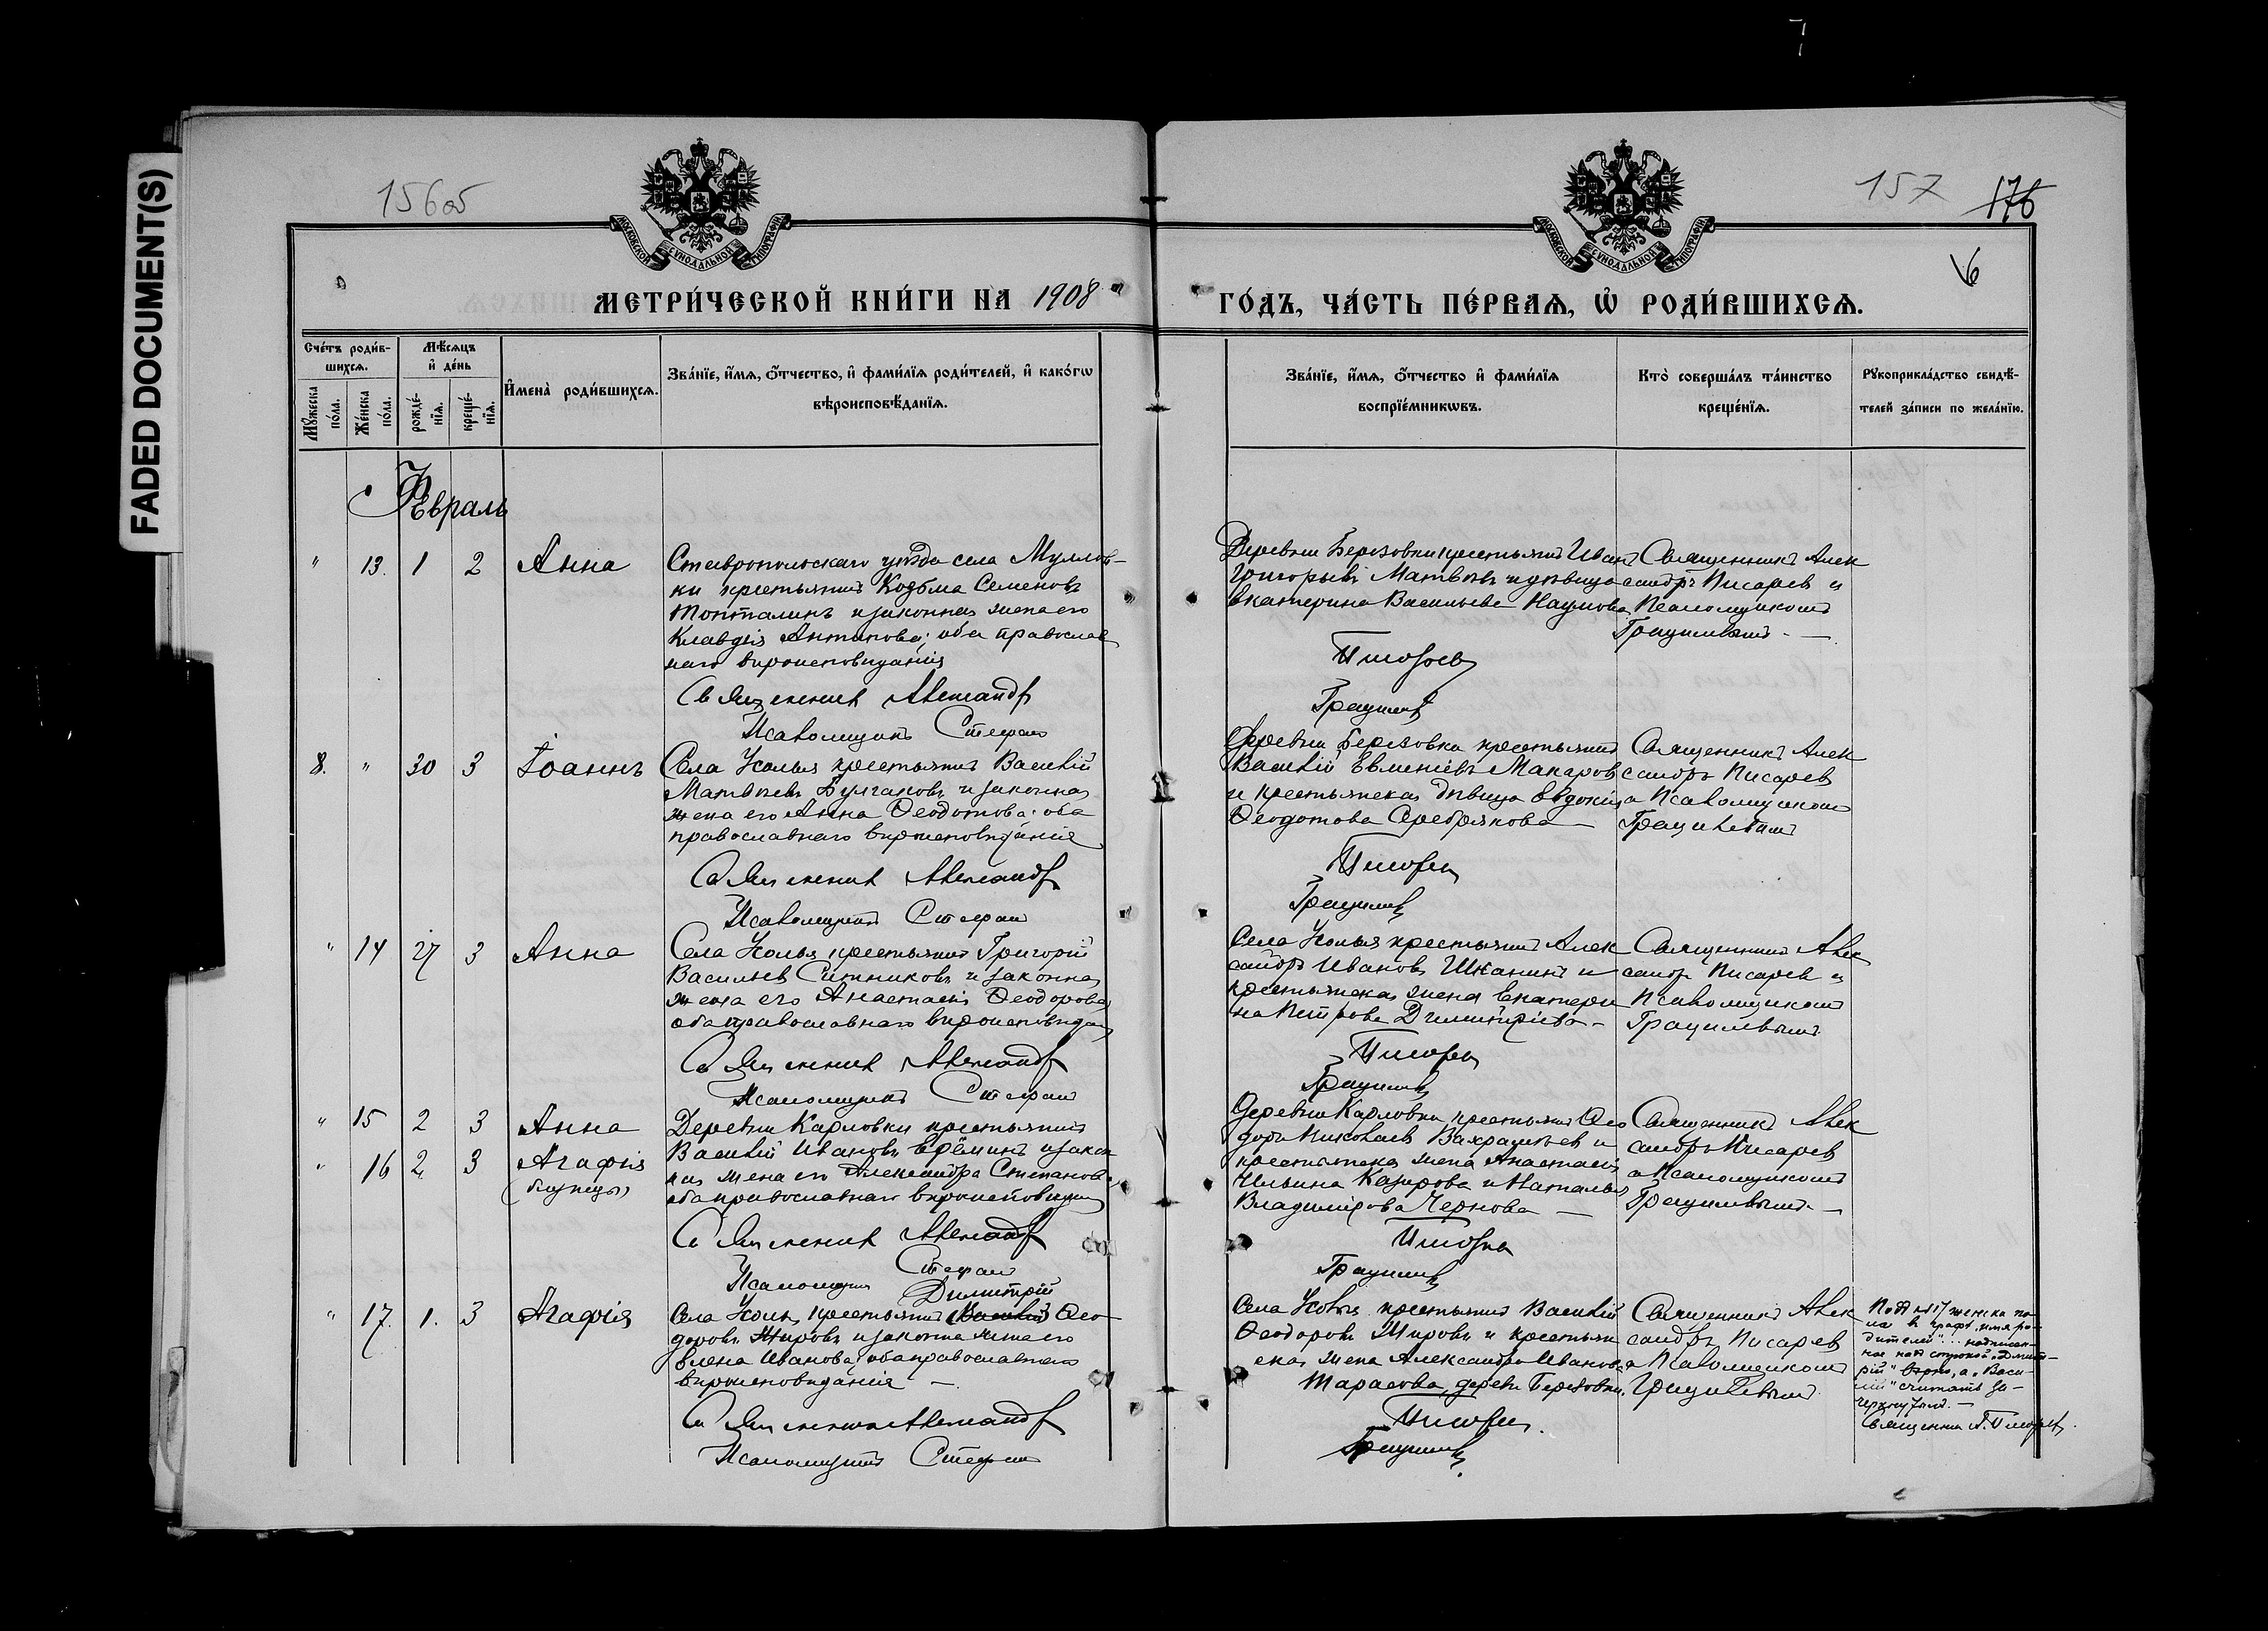 FADED DOCUMENT(S)
156об
157 176
6
МОСКОВСКОЙ СѴНОДАЛЬНОЙ ТИПОГРАФІИ
МОСКОВСКОЙ СѴНОДАЛЬНОЙ ТИПОГРАФІИ
МЕТРИ́ЧЕСКОЙ КНИ́ГИ НА 1908
ГО́ДЪ, ЧА́СТЬ ПЕ́РВАѦ, Ѡ҆ РОДИ́ВШИХСѦ.
Сче́тъ роди́в-
шихсѧ.
Мꙋжеска по́ла.
Же́нска по́ла.
Мѣ́сѧцъ
и҆ де́нь
рожде́-
нїѧ.
креще́-
нїѧ.
И҆мена̀ роди́вшихсѧ.
Зва́нїе, и҆́мѧ, ѻ҆́тчество, и҆ фами́лїѧ роди́телей, и҆ како́гѡ
вѣроисповѣ́данїѧ.
Зва́нїе, и҆́мѧ, ѻ҆́тчество и҆ фами́лїѧ
воспрїе́мникѡвъ.
Кто̀ соверша́лъ та́инство
креще́нїѧ.
Рꙋкоприкла́дство свидѣ́-
телей за́писи по жела́нїю.
Февраль
" 13. 1 2 Анна
Ставропольскаго уѣзда села Муллов-
ки крестьянинъ Козьма Семеновъ
Топталинъ и законная жена его
Клавдія Антипова; оба православ
наго вѣроисповѣданія
Священник Александр
Псаломщикъ Стефан
Деревни Березовки крестьянинъ Иванъ
Григорьевъ Матвѣевъ и дѣвица
Екатерина Васильева Наумова
Писарев
Грацилев
Священникъ Алек
сандръ Писарев и
Псаломщикомъ
Грацилевымъ. —
8. " 30 3 Іоаннъ
Села Усолья крестьянинъ Василій
Матвѣевъ Булгаковъ и законная
жена его Анна Ѳеодотова; оба
православнаго вѣроисповѣданія
Священник Александр
Псаломщикъ Стефан
Деревни Березовки крестьянинъ
Василій Евменіевъ Макаров
и крестьянская дѣвица Евдокія
Ѳеодотова Серебрякова —
Писарев
Грацилев
Священникъ Алек
сандръ Писарев
и Псаломщиком
Грацилевымъ
" 14 27 3 Анна
Села Усолья крестьянинъ Григорій
Васильев Ситников и законная
жена его Анастасія Ѳеодорова
оба православнаго вѣроисповѣдан
Священник Александр
Псаломщикъ Стефан
Села Усолья крестьянинъ Алек
сандръ Иванов Шканинъ и
крестьянская жена Екатери
на Петрова Димитріева. —
Писарев
Грацилев
Священникъ Алек
сандр Писарев и
Псаломщикомъ
Грацилевымъ
" 15 2 3 Анна
" 16 2 3 Агафія
(близнецы)
Деревни Карловки крестьянинъ
Василій Иванов Ерёминъ и закон
ная жена его Александра Степанова,
оба православнаго вѣроисповѣдан
Священник Александр
Псаломщик Стефан
Деревни Карловки крестьянинъ Ѳео
доръ Николаев Вахрамѣев и
крестьянская жена Анастасія
Ильина Казирова и Наталья
Владимірова Чернова —
Писарев
Грацилев
Священникъ Алек
сандръ Писарев
и Псаломщикомъ
Грацилевымъ. —
" 17. 1. 3 Агафія
Димитрій
Села Усолья, крестьянинъ (Василій) Ѳео-
доровъ Жировъ и законная жена его
Елена Иванова; оба православнаго
вѣроисповѣданія —
Священник Александр
Псаломщикъ Стефан
Села Усолья крестьянинъ Василій
Ѳеодоровъ Жировъ и крестьян
ская жена Александра Иванова
Тарасова, деревни Березовки.
Писарев.
Грацилев
Священникъ Алек
сандръ Писарев
и Псаломщикомъ
Грацилевымъ
Подъ № 17 женска по-
ла в графѣ „имя ро-
дителей"... надписан-
ное надъ строкой „Димит-
рій" вѣрно, а „Васи-
лій" считать за-
черкнутымъ. —
Священник А. Писарев.